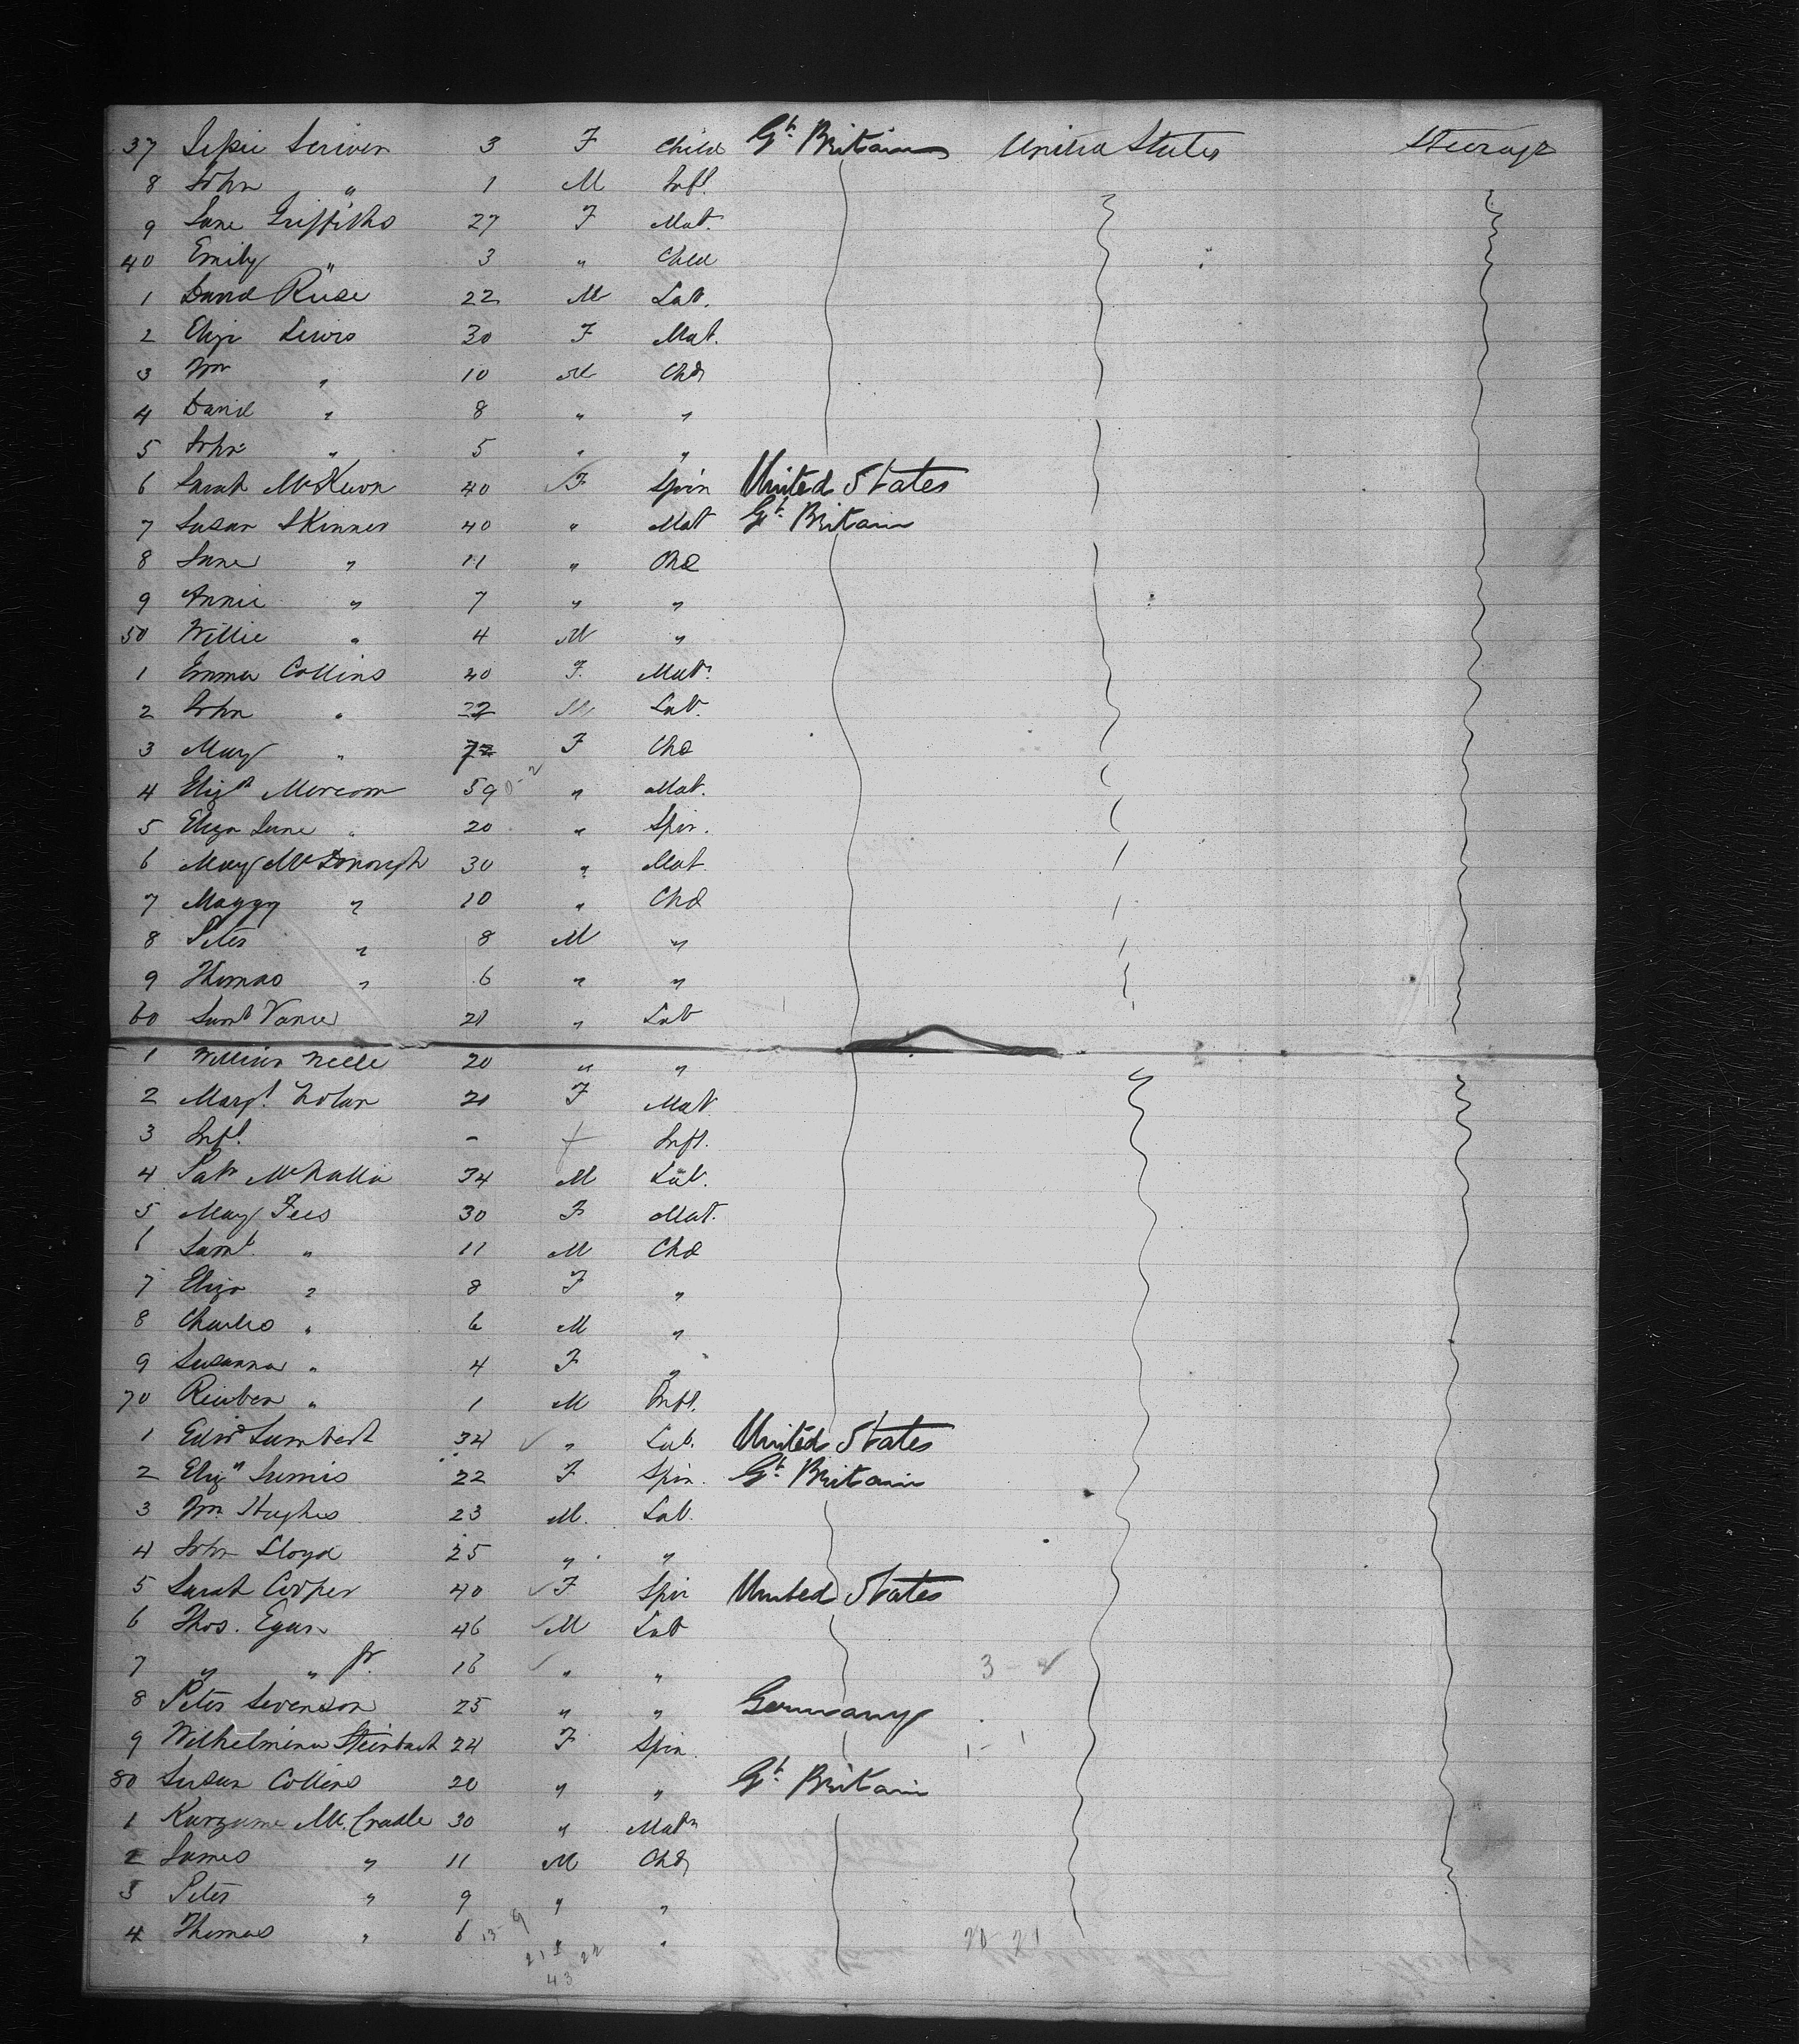 37 Scriven 3 F Child Gt. Britain United States Steerage
8 John " 1 M Inft.
9 Jane Griffiths 27 F Mat.
40 Emily " 3 " Child
1 David 22 M Lab.
2 Eliza Lewis 30 F Mat.
3 Wm " 10 M Chd
4 David " 8 " "
5 John " 5 " "
6 Sarah McKeon 40 F Spin United States
7 Susan Skinner 40 " Mat Gt. Britain
8 Jane " 11 " Chd
9 Annie " 7 " "
50 Willie " 4 M "
1 Emma Collins 40 F. Mat.
2 John " 22 M Lab.
3 Mary " F Chd
4 Elizth Morcom 59 " Mat.
5 Eliza Jane " 20 " Spin.
6 Mary McDonough 30 " Mat.
7 Maggy " 10 " Chd
8 Peter " 8 M "
9 Thomas " 6 " "
60 Saml Vance 21 " Lab
1 William 20 " "
2 Margt. Nolan 21 F Mat
3 Inft. - Inft.
4 Pat 34 M Lab.
5 Mary Fees 30 F Mat.
6 Saml. " 11 M Chd
7 Eliza " 8 F "
8 Charles " 6 M "
9 Susanna " 4 F "
70 Reuben " 1 M Inft.
1 Edwd Lambert 34 " Lab. United States
2 Elizh 22 F Spin. Gt. Britain
3 Wm. Hughes 23 M. Lab.
4 John Lloyd 25 " "
5 Sarah Cooper 40 F Spin United States
6 Thos. Egan 46 M Lab
7 " " Jr. 16 " " 3 -
8 Peter Sevenson 25 " " Germany
9 Wilhelmina Steinbach 24 F Spin. 1 - 1
80 Susan Collins 20 " " Gt. Britain
1 Mc.Cradle 30 " Matn
2 James " 11 M Chd
3 Peter " 9 " "
4 Thomas " 6 " " 20 21
21 22
43